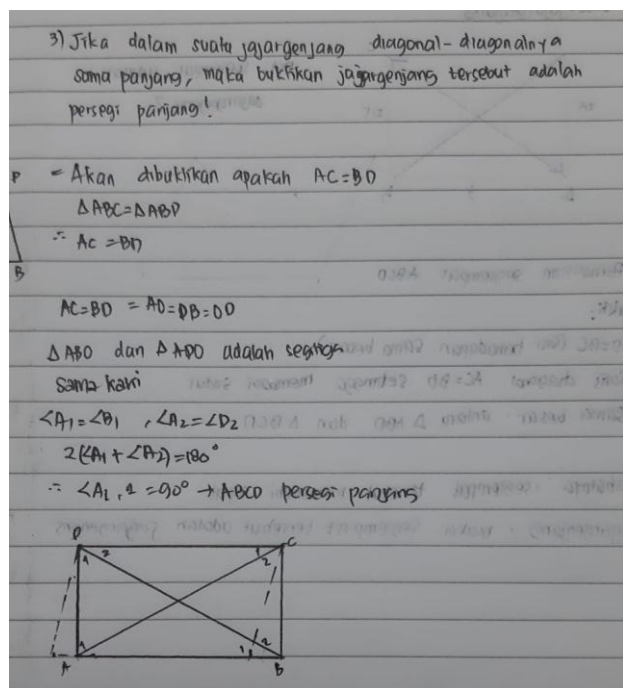 3) Jika dalam suatu jajargenjang diagonal-diagonalnya
sama panjang, maka buktikan jajargenjang tersebut adalah
persegi panjang!
P
B
= Akan dibuktikan apakah AC=BD
ΔABC=ΔABD
∴ AC=BD
AC=BD = AO=DB=OD
ΔABO dan ΔADO adalah segitiga
sama kaki
∠A1=∠B1 , ∠A2=∠D2
2(∠A1+∠A2)=180°
∴ ∠A1,2=90° → ABCD persegi panjang
D
1 2
1 2
C
1
A
1 2
B